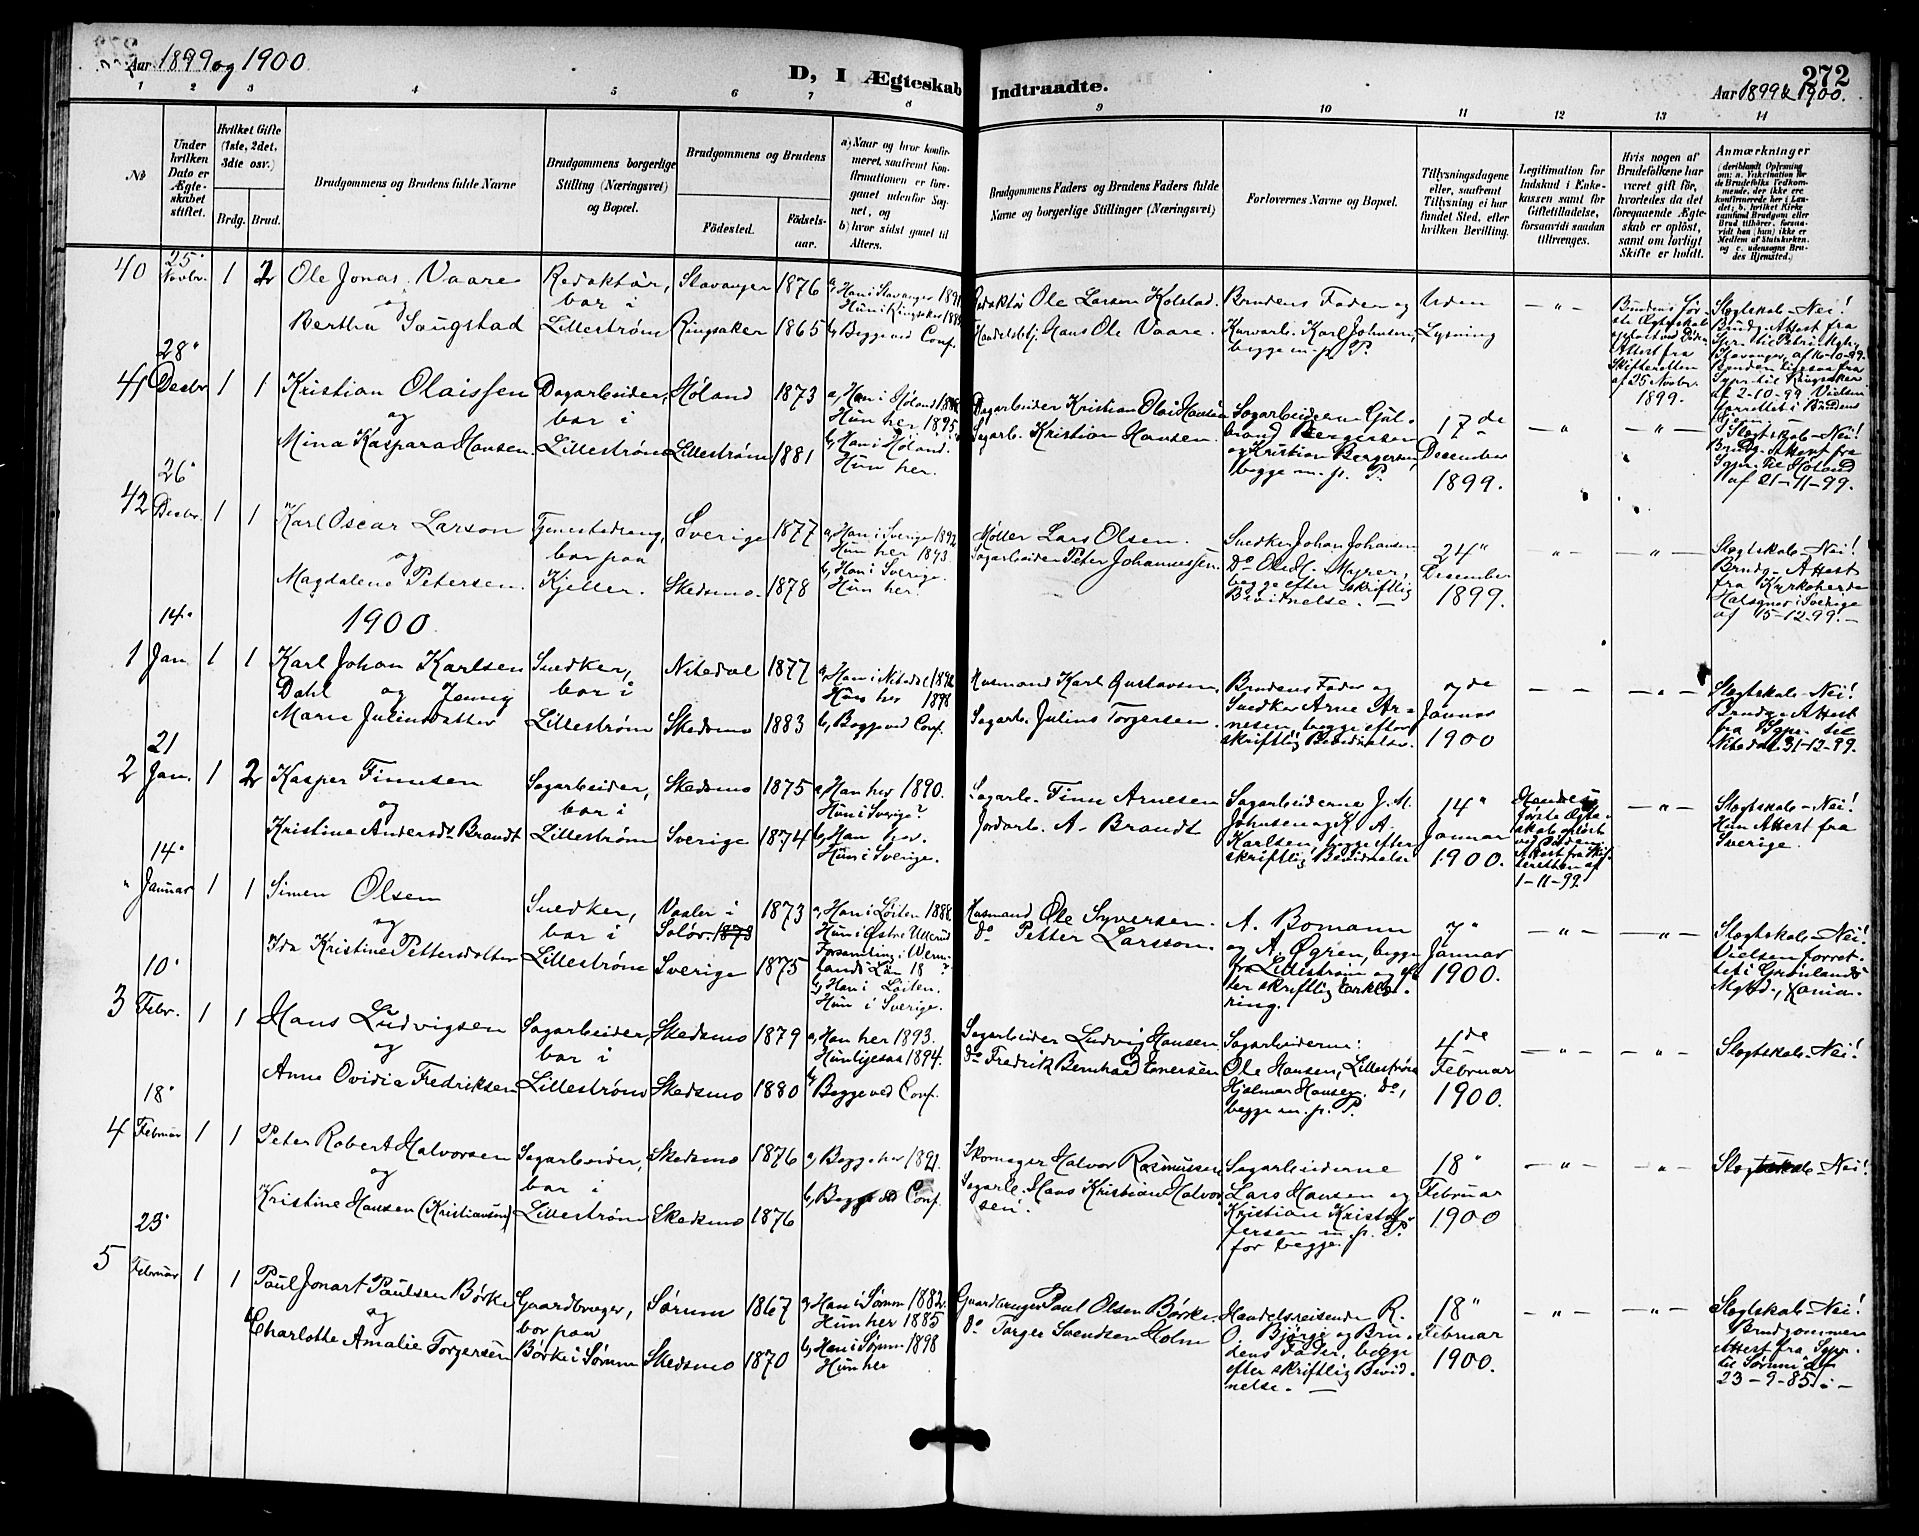 Aar 1899 og 1900
D, I Ægteskab Indtraadte.
272
Aar 1899 & 1900.
1 2 3 4 5 6 7 8 9 10 11 12 13 14
No
Under hvilken Dato er Ægteskabet stiftet.
Hvilket Gifte (1ste, 2det, 3die osv.)
Brdg. Brud.
Brudgommens og Brudens fulde Navne
Brudgommens borgerlige Stilling (Næringsvei) og Bopæl.
Brudgommens og Brudens
Fødested.
Fødselsaar.
a) Naar og hvor konfirmeret, saafremt Konfirmationen er foregaaet udenfor Sognet, og
b) hvor sidst gaaet til Alters.
Brudgommens Faders og Brudens Faders fulde Navne og borgerlige Stillinger (Næringsvei)
Forlovernes Navne og Bopæl.
Tillysningsdagene eller, saafremt Tillysning ei har fundet Sted, efter hvilken Bevilling.
Legitimation for Indskud i Enkekassen samt for Giftetilladelse, forsaavidt saadan tiltrænges.
Hvis nogen af Brudefolkene har været gift før, hvorledes da det foregaaende Ægteskab er opløst, samt om lovligt Skifte er holdt.
Anmærkninger
40 25' Novbr. 1 2
Ole Jonas Vaare
og
Bertha Saugstad
Redaktør,
bor i
Lillestrøm
Stavanger 1876
Ringsaker 1865
a, Han i Stavanger 1891
Hun i Ringsaker
b, Begge ved Conf.
Redaktør Ole Larsen Kolstad.
Handelsbtj. Hans Ole Vaare.
Brudens Fader og
Kurvarb. Karl Johnsen,
begge m. p. P.
Uden
Lysning
- " -
Brudens før-
ste Ægteskab
opløst ved Døden
Attest fra
Skifteretten
af 25 Novbr.
1899.
Slægtskab - Nei!
Brudg. Attest fra
Stavanger, af 10-10-99.
af 2-10-99. Vielsen
forrettet i Brudens
41 28' Decbr 1 1
Kristian Olaissen
og
Mina Kaspara Hansen
Dagarbeider,
bor i
Lillestrøm
Høland 1873
Lillestrøm 1881
a, Han i Høland
Hun her 1895
b, Han i Høland.
Hun her.
Dagarbeider Kristian Olai Hansen
Sagarb. Kristian Hansen.
Sagarbeiderne Gul-
brand Bergersen
og Kristian Bergersen,
begge m. p. P.
17de
December
1899.
- " -
- " -
Slægtskab - Nei!
Brudg. Attest fra
Sgpr. til Høland
af 21-11-99.
42 26' Decbr. 1 1
Karl Oscar Larson
og
Magdalene Petersen.
Tjenestedreng,
bor paa
Kjeller.
Sverige 1877
Skedsmo 1878
a, Han i Sverige 1892
Hun her 1893
b, Han i Sverige.
Hun her.
Møller Lars Olsen.
Sagarbeider Peter Johannessen.
Snedker Johan Johansen
Do Ole H. Myrer,
begge efter skriftlig
Bevidnelse. -
24"
December
1899.
- " -
- " -
Slægtskab - Nei!
Brudg. Attest
fra Kyrkoherde
i Sverige
af 15-12-99. -
1900.
1 14' Jan 1 1
Karl Johan Karlsen
Dahl og Jenny
Marie Juliusdatter
Snedker,
bor i
Lillestrøm
Nitedal 1877
Skedsmo 1883
a, Han i Nitedal 1892
Hun her 1898
b, Begge ved Conf.
Husmand Karl Gustavsen.
Sagarb. Julius Torgersen.
Brudens Fader og
Snedker Arne Ar-
nesen, begge efter
skriftlig Bevidnelse.
7de
Januar
1900
- " -
- " -
Slægtskab - Nei!
Brudg. Attest
fra Sgpr. til
Nitedal 31-12-99.
2 21 Jan. 1 2
Kasper Finnsen
og
Kristine Andersdt Brandt
Sagarbeider,
bor i
Lillestrøm
Skedsmo 1875
Sverige 1874
a, Han her 1890.
Hun i Sverige?
b, Han her.
Hun i Sverige.
Sagarb. Finn Arnesen
Jordarb. A. Brandt
Sagarbeiderne J. M.
Johnsen og K. A.
Karlsen, begge efter
skriftlig Bevidnelse
14"
Januar
1900.
Første Ægte-
skab opløst
ved Døden
Attest fra Skif-
teretten af
1-11-99.
- " -
Slægtskab - Nei!
Hun Attest fra
Sverige.
" 14' Januar 1 1
Simen Olsen
og
Ida Kristine Pettersdatter
Snedker,
bor i
Lillestrøm
Vaaler i
Solør. 1873
1873
Sverige 1875
a, Han i Løiten 1888.
Hun i Østre Ullerud
Forsamling i Werm-
lands Län 18 ?
b, Han i Løiten.
Hun i Sverige.
Husmand Ole Syversen.
do Petter Larsson.
A. Bomann
og A. Øgren, begge
fra Lillestrøm og ef-
ter skriftlig Erklæ-
ring.
7"
Januar
1900.
- " -
- " -
Slægtskab - Nei!
Vielsen forret-
tet i Grønlands
Mghd., Xania.
3 10' Febr. 1 1
Hans Ludvigsen
og
Anna Ovidia Fredriksen
Sagarbeider,
bor i
Lillestrøm
Skedsmo 1879
Skedsmo 1880
a, Han her 1893.
Hun ligesaa 1894.
b, Begge ved Conf.
Sagarbeider Ludvig Hansen.
do Fredrik Bernhard Enersen
Sagarbeiderne:
Ole Hansen, Lillestrøm
Hjalmar Hansen, do,
begge m. p. P.
4de
Februar
1900.
- " -
- " -
Slægtskab - Nei!
4 18' Februar 1 1
Peter Robert Halvorsen
og
Kristine Hansen (Kristiansen)
Sagarbeider,
bor i
Lillestrøm
Skedsmo 1876
Skedsmo 1876
a, Begge her 1891.
b, Begge ved Conf.
Skomager Halvor Rasmussen
Sagarb. Hans Kristian Halvor-
sen.
Sagarbeiderne
Lars Hansen og
Kristian Kristof-
fersen m. p. P.
for begge.
18"
Februar
1900
- " -
- " -
Slægtskab - Nei!
5 23' Februar 1 1
Paul Jonart Paulsen Børke
og
Charlotte Amalie Torgersen
Gaardbruger,
bor paa
Børke i Sørum
Sørum 1867
Skedsmo 1870
a, Han i Sørum 1882.
Hun her 1885
b, Han i Sørum 1898
Hun her
Gaardbruger Paul Olsen Børke.
do. Torger Svendsen Holm
Handelsreisende R.
O. Bjørge og Bru-
dens Fader, begge
efter skriftlig Bevid-
nelse. -
18"
Februar
1900.
- " -
- " -
Slægtskab - Nei!
Brudgommen
Attest fra Sgpr.
til Sørum af
23-9-85. -